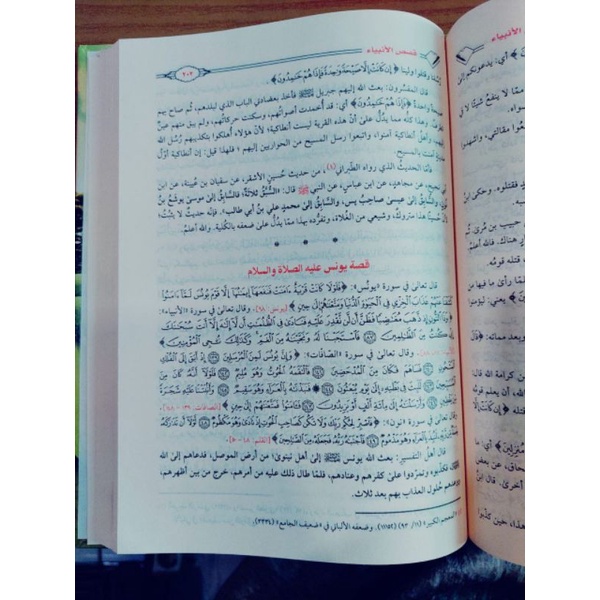 قصص الأنبياء
٢٠٢
إلينا وقاتلوا ولينا ﴿إِن كَانَتْ إِلَّا صَيْحَةً وَاحِدَةً فَإِذَا هُمْ خَامِدُونَ﴾
قال المفسرون: بعث الله إليهم جبريل ﷺ فأخذ بعضادتي الباب الذي لبلدهم، ثم صاح بهم
صيحة واحدة ﴿فَإِذَا هُمْ خَامِدُونَ﴾ أي: قد أُخمدت أصواتهم، وسكنت حركاتهم، ولم يبق منهم عين
تطرف. وهذا كله مما يدل على أنّ هذه القرية ليست أنطاكية؛ لأن هؤلاء أُهلكوا بتكذيبهم رسل الله
إليهم، وأهل أنطاكية آمنوا، واتبعوا رسل المسيح من الحواريين إليهم؛ فلهذا قيل: إن أنطاكية أول
مدينة آمنت بالمسيح.
فأمّا الحديث الذي رواه الطبراني، من حديث حُسين الأشقر، عن سفيان بن عُيينة، عن ابن
أبي نجيح، عن مجاهد، عن ابن عباس، عن النبي ﷺ قال: «السُبَّق ثلاثة: فالسّابق إلى موسى يوشع بن
نون، والسّابق إلى عيسى صاحب يس، والسّابق إلى محمد علي بن أبي طالب». فإنّه حديث لا يثبت؛
لأن حُسيناً هذا متروك، وشيعي من الغُلاة، وتفرّده بهذا ممّا يدل على ضعفه بالكلية. والله أعلم.
* * *
قصة يونس عليه الصلاة والسلام
قال تعالى في سورة «يونس»: ﴿فَلَوْلَا كَانَتْ قَرْيَةٌ ءَامَنَتْ فَنَفَعَهَا إِيمَٰنُهَا إِلَّا قَوْمَ يُونُسَ لَمَّا ءَامَنُوا
كَشَفْنَا عَنْهُمْ عَذَابَ الْخِزْيِ فِي الْحَيَوٰةِ الدُّنْيَا وَمَتَّعْنَٰهُمْ إِلَىٰ حِينٍ﴾ [يونس: ٩٨]. وقال تعالى في سورة «الأنبياء»:
﴿وَذَا النُّونِ إِذ ذَّهَبَ مُغَٰضِبًا فَظَنَّ أَن لَّن نَّقْدِرَ عَلَيْهِ فَنَادَىٰ فِي الظُّلُمَٰتِ أَن لَّا إِلَٰهَ إِلَّا أَنتَ سُبْحَٰنَكَ
إِنِّي كُنتُ مِنَ الظَّٰلِمِينَ ﴿٨٧﴾ فَاسْتَجَبْنَا لَهُ وَنَجَّيْنَٰهُ مِنَ الْغَمِّ وَكَذَٰلِكَ نُۨجِي الْمُؤْمِنِينَ﴾
[الأنبياء: ٨٧، ٨٨]. وقال تعالى في سورة «الصافات»: ﴿وَإِنَّ يُونُسَ لَمِنَ الْمُرْسَلِينَ ﴿١٣٩﴾ إِذْ أَبَقَ إِلَى الْفُلْكِ
الْمَشْحُونِ ﴿١٤٠﴾ فَسَاهَمَ فَكَانَ مِنَ الْمُدْحَضِينَ ﴿١٤١﴾ فَالْتَقَمَهُ الْحُوتُ وَهُوَ مُلِيمٌ ﴿١٤٢﴾ فَلَوْلَا أَنَّهُ كَانَ مِنَ
الْمُسَبِّحِينَ ﴿١٤٣﴾ لَلَبِثَ فِي بَطْنِهِ إِلَىٰ يَوْمِ يُبْعَثُونَ ﴿١٤٤﴾ فَنَبَذْنَٰهُ بِالْعَرَاءِ وَهُوَ سَقِيمٌ ﴿١٤٥﴾ وَأَنبَتْنَا عَلَيْهِ شَجَرَةً
مِّن يَقْطِينٍ ﴿١٤٦﴾ وَأَرْسَلْنَٰهُ إِلَىٰ مِائَةِ أَلْفٍ أَوْ يَزِيدُونَ ﴿١٤٧﴾ فَـَٔامَنُوا فَمَتَّعْنَٰهُمْ إِلَىٰ حِينٍ﴾ [الصافات: ١٣٩ - ١٤٨].
وقال تعالى في سورة «نون»: ﴿فَاصْبِرْ لِحُكْمِ رَبِّكَ وَلَا تَكُن كَصَاحِبِ الْحُوتِ إِذْ نَادَىٰ وَهُوَ مَكْظُومٌ ﴿٤٨﴾ لَّوْلَا أَن تَدَٰرَكَهُ
نِعْمَةٌ مِّن رَّبِّهِ لَنُبِذَ بِالْعَرَاءِ وَهُوَ مَذْمُومٌ ﴿٤٩﴾ فَاجْتَبَٰهُ رَبُّهُ فَجَعَلَهُ مِنَ الصَّٰلِحِينَ﴾ [القلم: ٤٨ - ٥٠].
قال أهل التفسير: بعث الله يونس ﷺ إلى أهل نينوى، من أرض الموصل، فدعاهم إلى الله
فكذبوه وتمرّدوا على كفرهم وعنادهم، فلمّا طال ذلك عليه من أمرهم، خرج من بين أظهرهم،
ووعدهم حُلول العذاب بهم بعد ثلاث.
«المعجم الكبير» (١١/ ٩٣) (١١١٥٢)، وضعفه الألباني في «ضعيف الجامع» (٣٣٣٤).